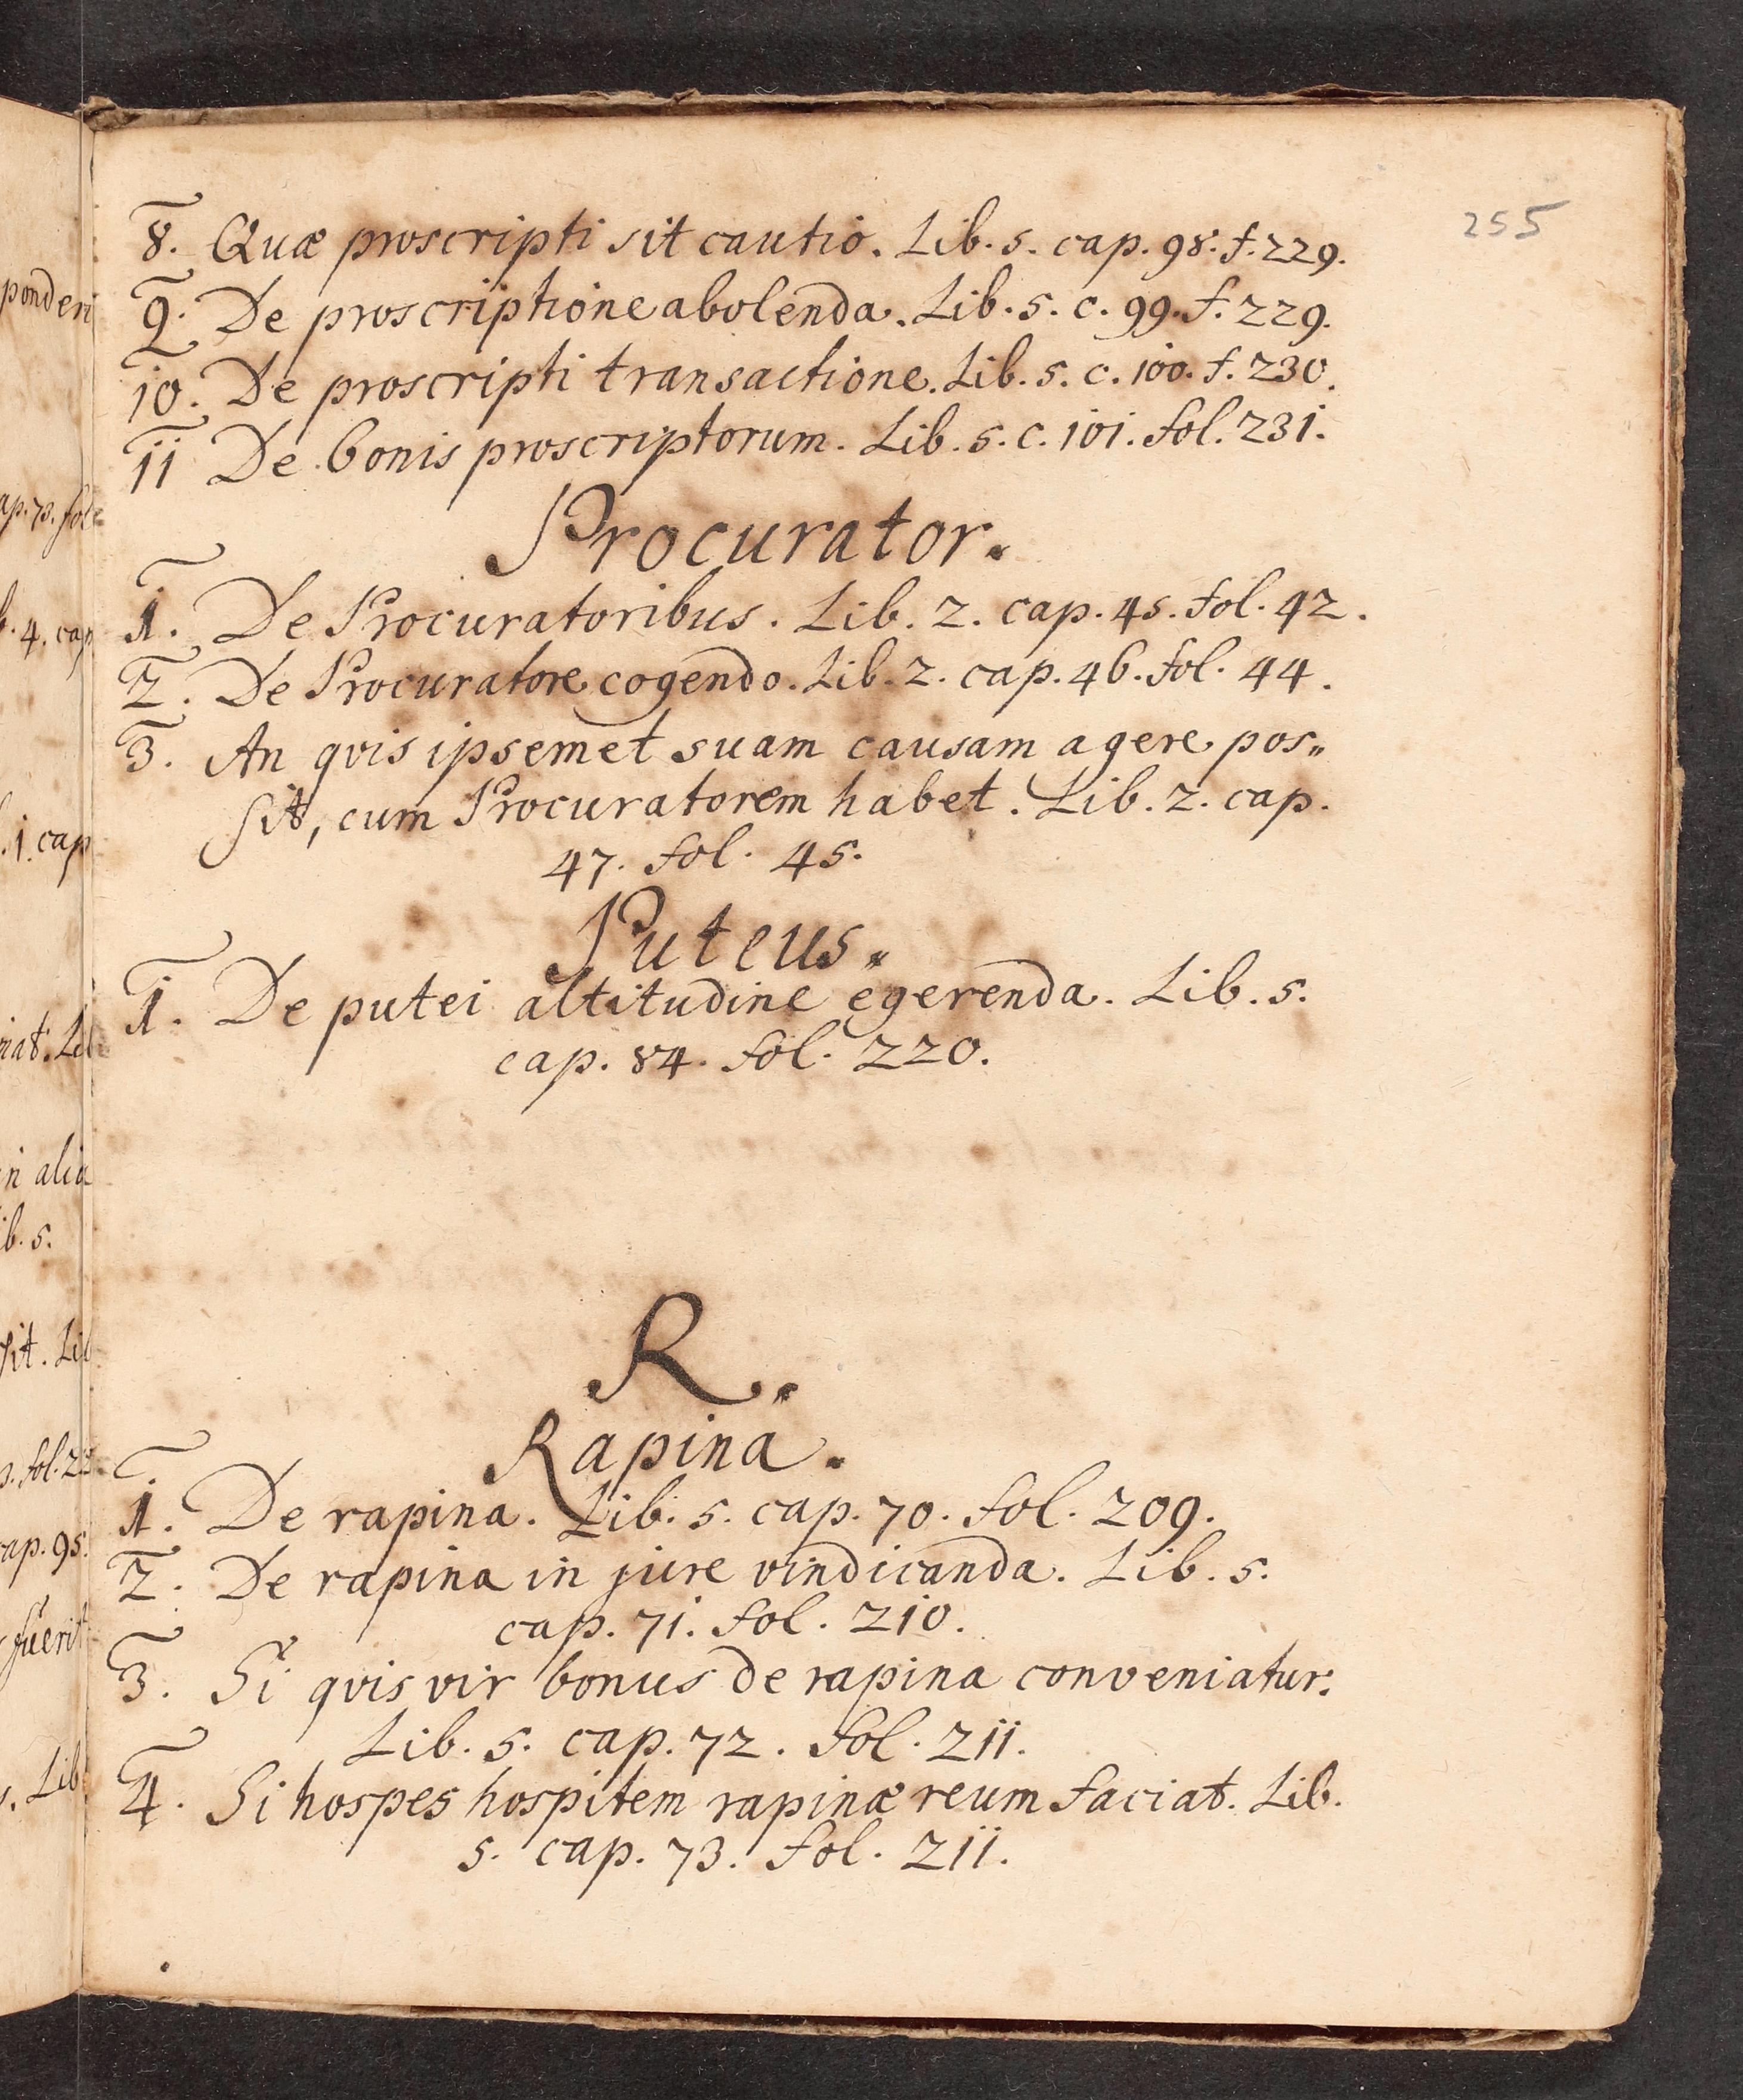 255
8. Quæ proscripti sit cautio. Lib. 5. cap. 98. f. 229.
9. De proscriptione abolenda. Lib. 5. c. 99. f. 229.
10. De proscripti transactione. Lib. 5. c. 100. f. 230.
11 De bonis proscriptorum. Lib. 5. c. 101. fol. 231.
Procurator.
1. De Procuratoribus. Lib. 2. cap. 45. fol. 42.
2. De Procuratore cogendo. Lib. 2. cap. 46. fol. 44.
3. An qvis ipsemet suam causam agere pos„
sit, cum Procuratorem habet. Lib. 2. cap.
47. fol. 45.
Puteus.
1. De putei altitudine egerenda. Lib. 5.
cap. 84. fol. 220.
R.
Rapina.
1. De rapina. Lib. 5. cap. 70. fol. 209.
2. De rapina in jure vindicanda. Lib. 5.
cap. 71. fol. 210.
3. Si qvis vir bonus de rapina conveniatur.
Lib. 5. cap. 72. fol. 211.
4. Si hospes hospitem rapinæ reum faciat. Lib.
5. cap. 73. fol. 211.